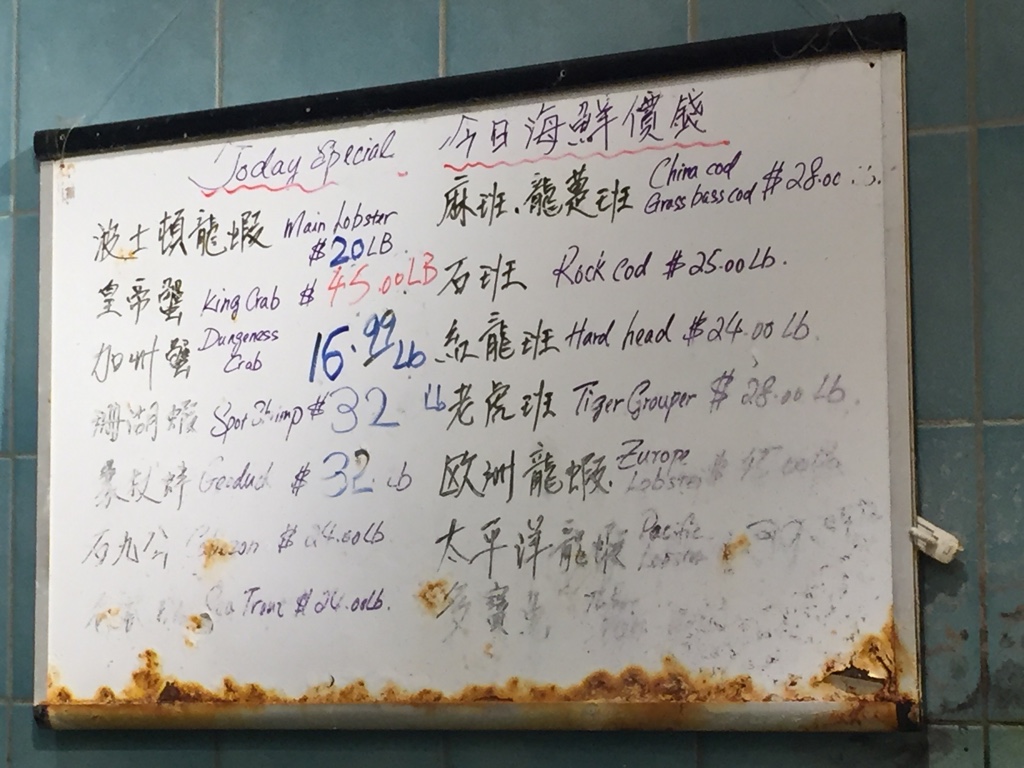 Today Special 今日海鮮價錢
波士頓龍蝦 Main Lobster
$20LB
皇帝蟹 King Crab $45.00LB
加州蟹 Dungeness
Crab 16.99Lb
珊瑚蝦 Spot Shrimp $32 Lb
象拔蚌 Geoduck $32 Lb
石九公 $24.00Lb
Sea $24.00Lb.
麻班、龍躉班 China cod
Grass bass cod $28.00
石班 Rock Cod $25.00Lb.
紅龍班 Hard head $24.00 Lb
老虎班 Tiger Grouper $28.00 Lb
欧洲龍蝦 Europe
Lobster $
太平洋龍蝦 Pacific
Lobster
多寶魚